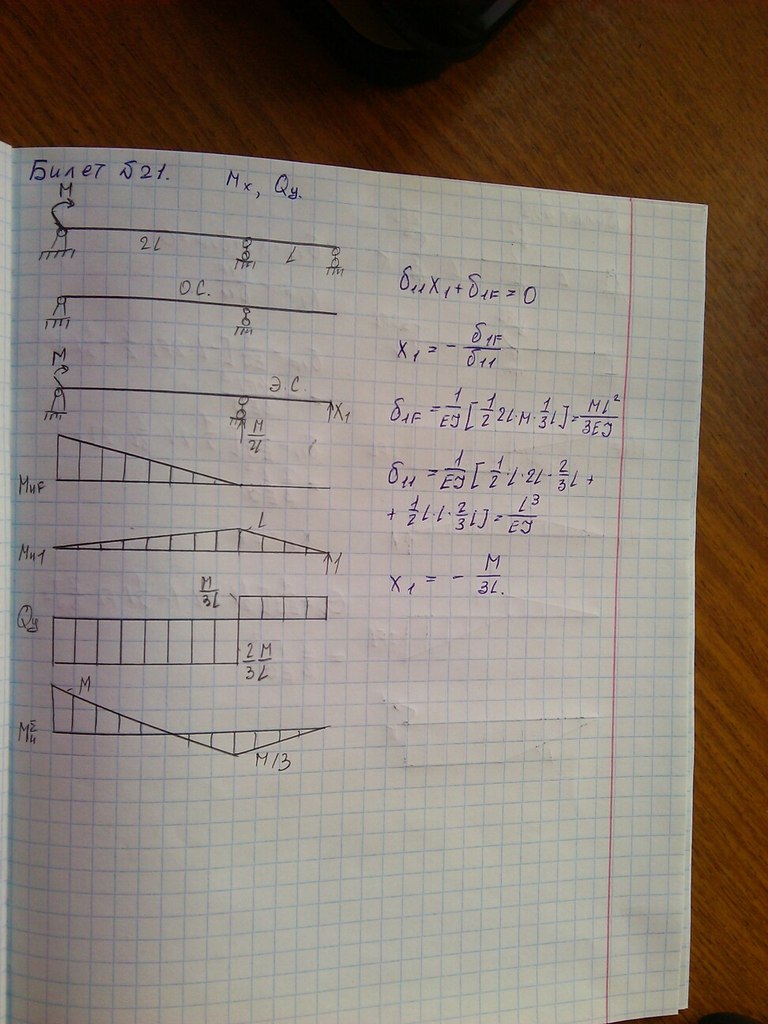 Билет б21. Mx, Qy.
M
2l
l
О.С.
M
Э.С.
X1
M/2l
MиF
Mи1
l
1
M/3l
Qy
2/3 M/l
M
MиΣ
M/3
б11X1+б1F=0
X1 = - б1F/б11
б1F = 1/EJ [1/2 2l·M·1/3 l] = Ml²/3EJ
б11 = 1/EJ [1/2·l·2l·2/3 l +
+ 1/2 l·l·2/3 l] = l³/EJ
X1 = - M/3l.